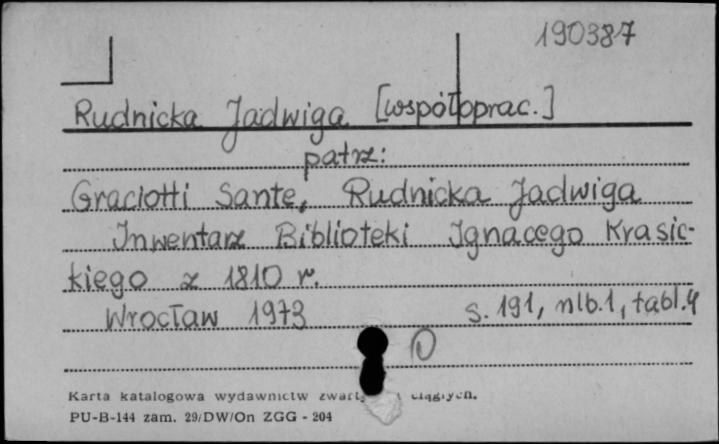 190387
Rudnicka Jadwiga [współoprac.]
patrz:
Graciotti Sante, Rudnicka Jadwiga
Inwentarz Biblioteki Ignacego Krasic-
kiego z 1810 r.
Wrocław 1973 s. 191, nlb.1, tabl.4
Karta katalogowa wydawnictw ciągłych.
PU-B-144 zam. 29/DW/On ZGG - 204